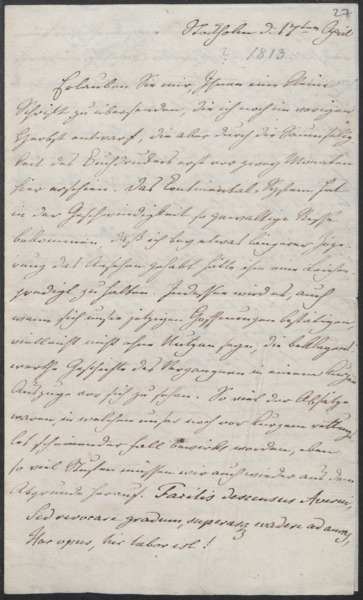 27
Stockholm d. 17ten April
? 1813.
Erlauben Sie mir, Ihnen eine kleine
Schrift zu übersenden, die ich noch im vorigen
Herbst entwarf, die aber durch die Saumselig
keit des Buchdruckers erst vor zwey Monaten
hier erschien. Das Continental-System hat
in der Geschwindigkeit so gewaltige Stöße
bekommen, daß ich bey etwas längerer Zöge
rung das Ansehen gehabt hätte ihm eine Leichen
predigt zu halten. Indessen wird es, auch
wenn sich unsre jetzigen Hoffnungen bestätigen,
vielleicht nicht ohne Nutzen seyn, die beklagens
werthe Geschichte des Vergangnen in einem kurzen
Auszuge vor sich zu sehen. So viel der Absätze
waren, in welchen unser noch vor kurzem rettungs
los scheinender Fall bewirkt worden, eben
so viel Stufen müssen wir auch wieder aus dem
Abgrunde herauf. Facilis descensus Averni,
Sed revocare gradum, superasq evadere ad auras,
Hoc opus, hic labor est!